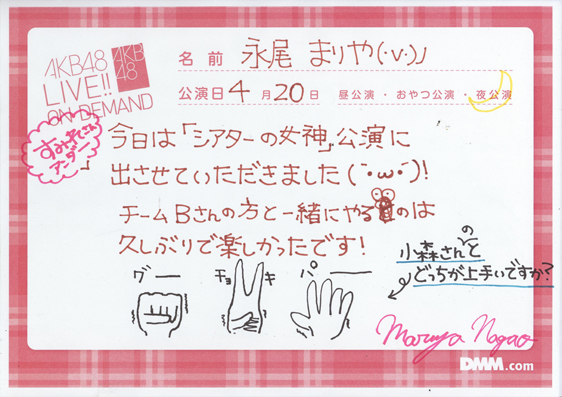 AKB48
LIVE!!
ON DEMAND
AKB
48
名前 永尾 まりや(·v·)」
公演日 4 月 20 日 昼公演・おやつ公演・夜公演
アンダー
今日は「シアターの女神」公演に
出させていただきました(´·ω·`)!
チームBさんの方と一緒にやるのは
久しぶりで楽しかったです!
グー チョキ パー
小森さんのと
どっちが上手いですか?
Mariya Nagao
DMM.com